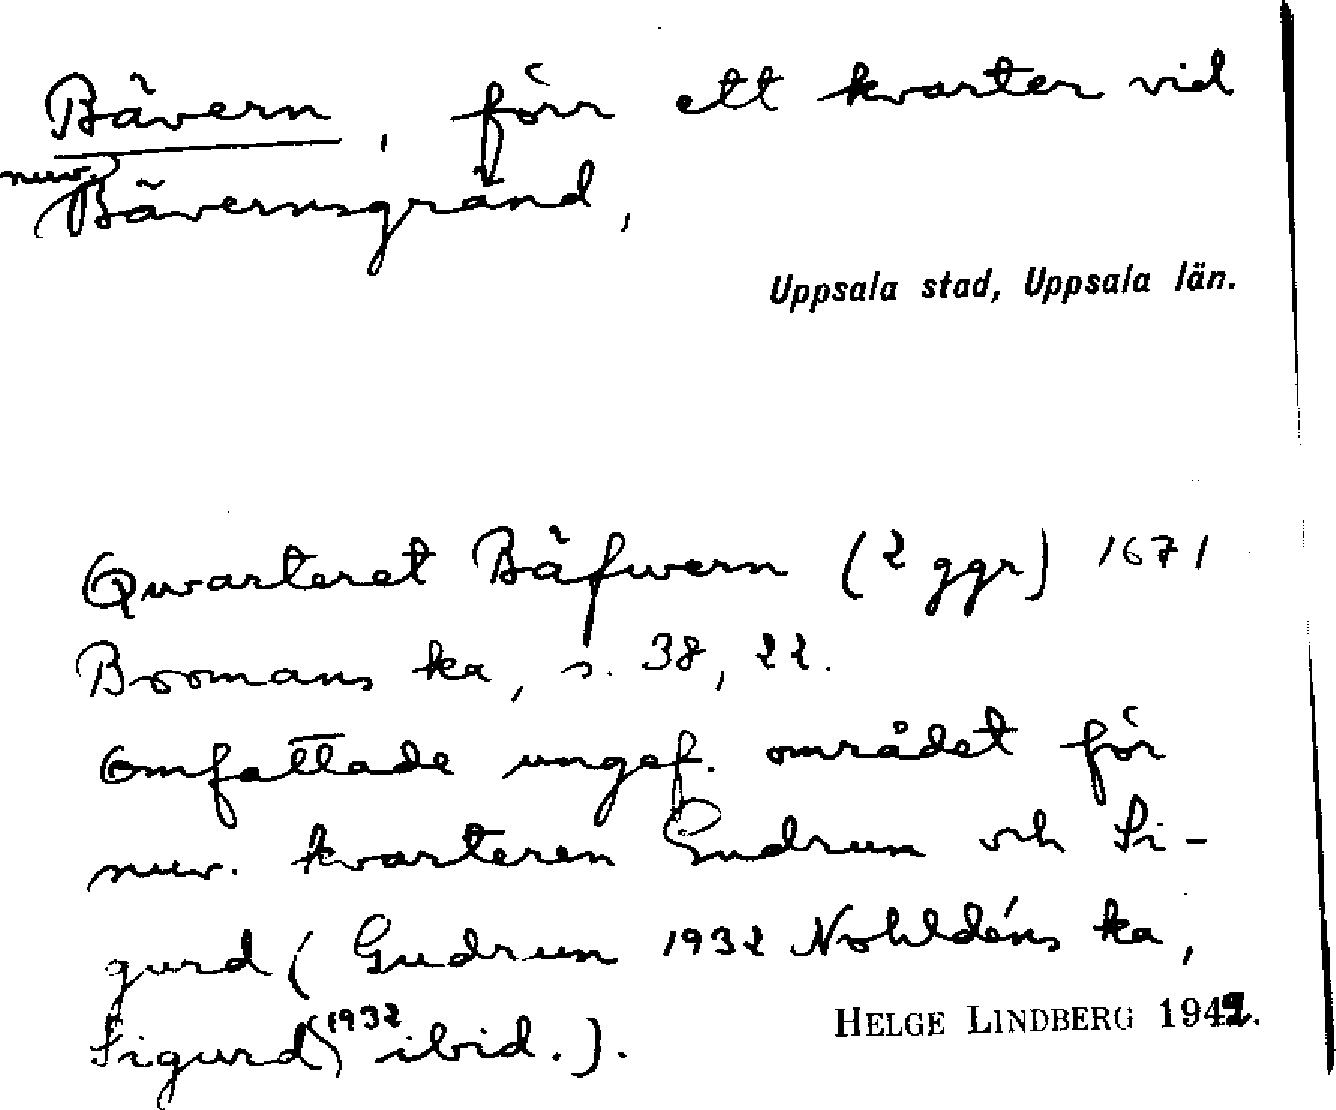 Bävern, förr ett kvarter vid
nuv. Bävernsgränd,
Uppsala stad, Uppsala län.
Qwarteret Bäfwern (2 ggr) 1671
Bromans ka, s. 38, 22.
Omfattade ungef. området för
nuv. kvarteren Gudrun och Si-
gurd (Gudrun 1932 Nohldéns ka,
Sigurd 1932 ibid.).
HELGE LINDBERG 1942.